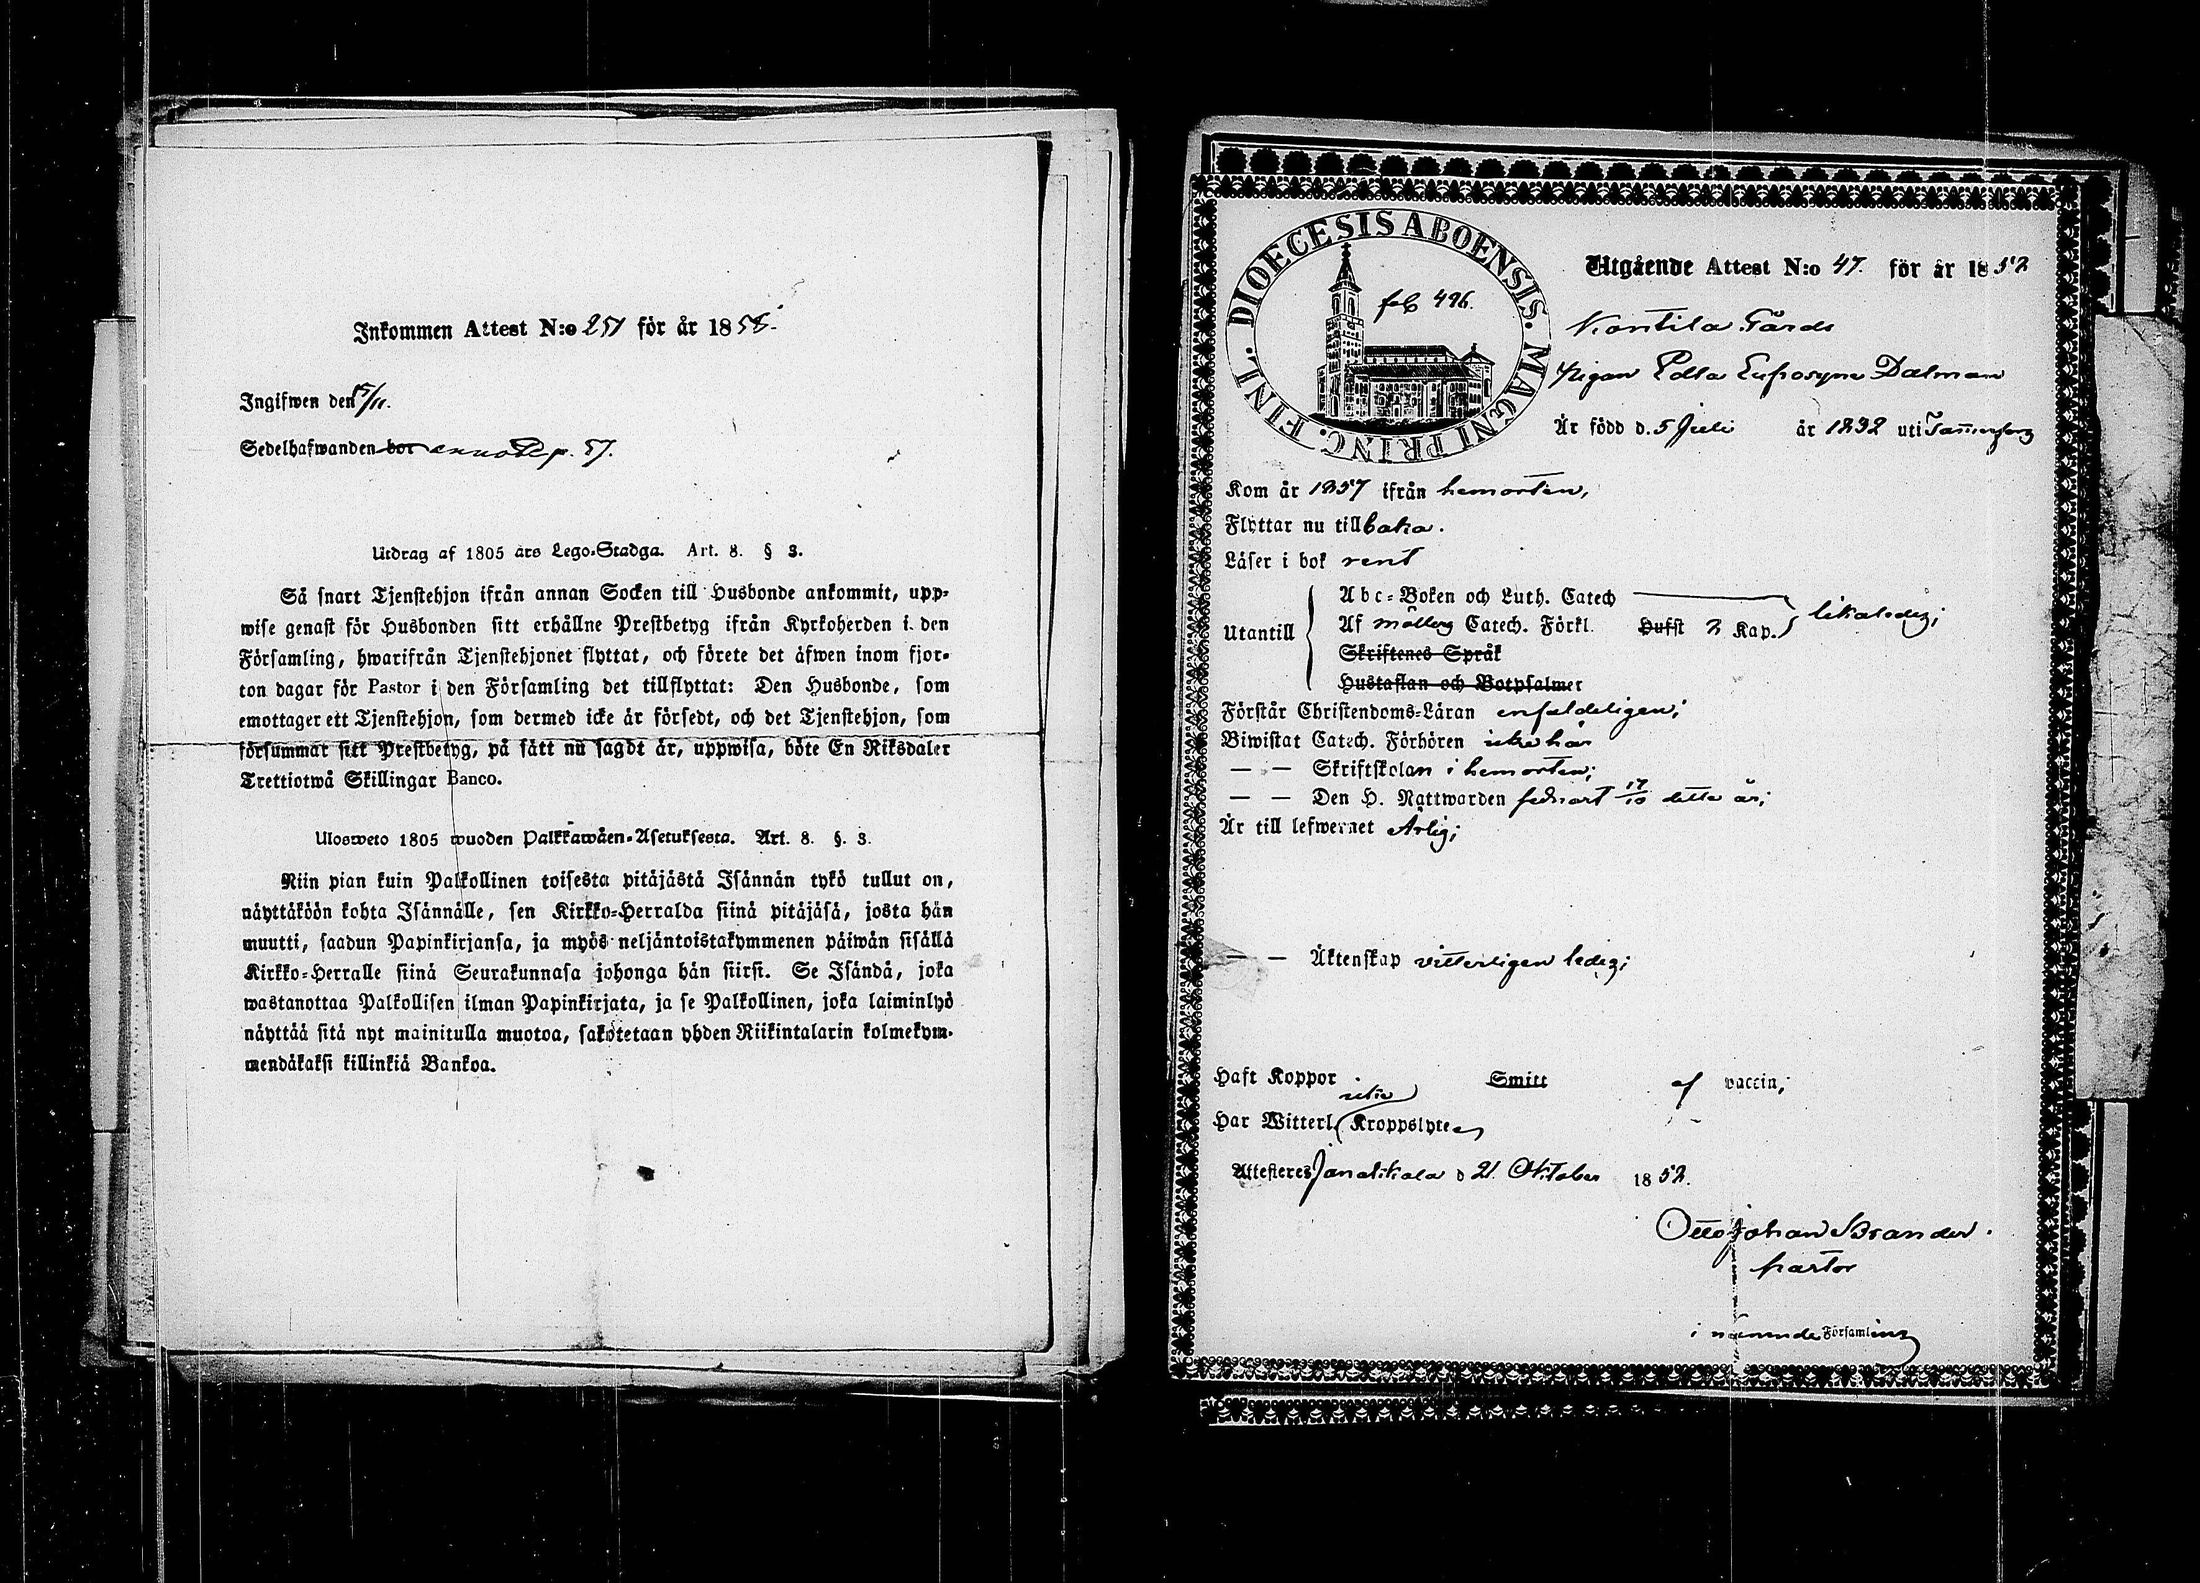 Inkommen Attest N:o 251 för år 1858.
Ingifwen den 5/11.
Sedelhafwanden bor p. 57.
Utdrag af 1805 års Lego-Stadga. Art. 8. § 3.
Så snart Tjenstehjon ifrån annan Socken till Husbonde ankommit, upp-
wise genast för Husbonden sitt erhållne Prestbetyg ifrån Kyrkoherden i den
Församling, hwarifrån Tjenstehjonet flyttat, och förete det äfwen inom fjor-
ton dagar för Pastor i den Församling det tillflyttat: Den Husbonde, som
emottager ett Tjenstehjon, som dermed icke är försedt, och det Tjenstehjon, som
försummar sitt Prestbetyg, på sätt nu sagdt är, uppwisa, böte En Riksdaler
Trettiotwå Skillingar Banco.
Ulosweto 1805 wuoden Palkkawäen-Asetuksesta. Art. 8. §. 3.
Niin pian kuin Palkollinen toisesta pitäjästä Isännän tykö tullut on,
näyttäköön kohta Isännälle, sen Kirkko-Herralda siinä pitäjäsä, josta hän
muutti, saadun Papinkirjansa, ja myös neljäntoistakymmenen päiwän sisällä
Kirkko-Herralle siinä Seurakunnasa johonga hän siirsi. Se Isändä, joka
wastanottaa Palkollisen ilman Papinkirjata, ja se Palkollinen, joka laiminlyö
näyttää sitä nyt mainitulla muotoa, sakotetaan yhden Riikintalarin kolmekym-
mendäkaksi killinkiä Bankoa.
DIOECESIS ABOENSIS. MAGNI PRINC. FINL.
fol 496.
Utgående Attest N:o 47. för år 1858
Kontila Gårds
Pigan Edla Eufrosyne Dalman
Är född d. 5 Juli år 1832 uti
Kom år 1857 ifrån hemorten,
Flyttar nu tillbaka.
Läser i bok rent
Utantill
Abc-Boken och Luth. Catech
Af Möllers Catech. Förkl. Hufst 2 Kap. likaledes;
Skriftenes Språk
Hustaflan och Botpsalmer
Förstår Christendoms-Läran enfaldeligen;
Biwistat Catech. Förhören icke här
— — Skriftskolan i hemorten;
— — Den H. Nattwarden sednast 17/10 detta år;
Är till lefwernet Ärlig;
— — Äktenskap vitterligen ledig;
Haft Koppor Smitt af vaccin;
Har Witterl. icke Kroppslyte
Attesteres Janakkala d 21. Oktober 1858.
Otto Johan Brander.
pastor
i nämnde Församling